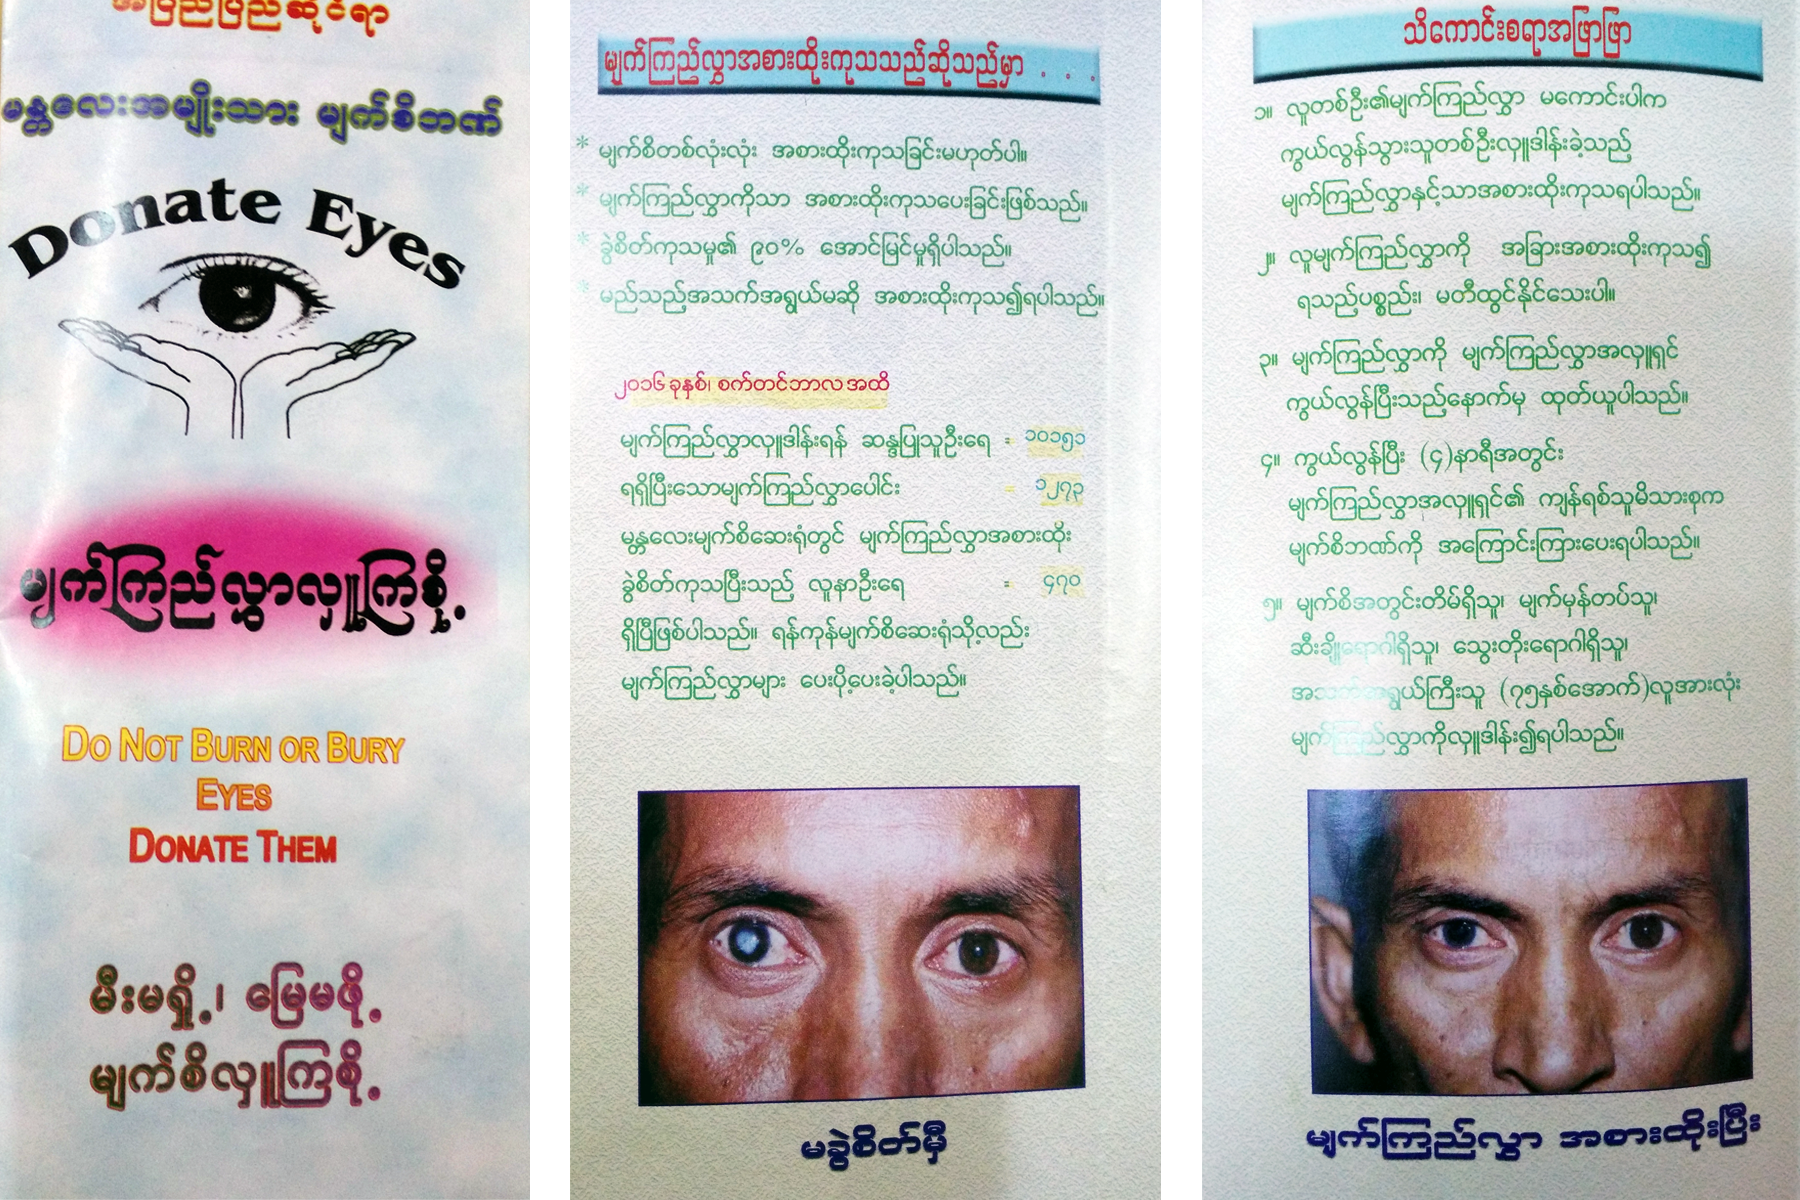 အပြည်ပြည်ဆိုင်ရာ
မန္တလေးအမျိုးသား မျက်စိဘဏ်
Donate Eyes
မျက်ကြည်လွှာလှူကြစို့
DO NOT BURN OR BURY
EYES
DONATE THEM
မီးမရှို့၊ မြေမဖို့
မျက်စိလှူကြစို့
မျက်ကြည်လွှာအစားထိုးကုသသည်ဆိုသည်မှာ . . .
* မျက်စိတစ်လုံးလုံး အစားထိုးကုသခြင်းမဟုတ်ပါ။
* မျက်ကြည်လွှာကိုသာ အစားထိုးကုသပေးခြင်းဖြစ်သည်။
* ခွဲစိတ်ကုသမှု၏ ၉၀% အောင်မြင်မှုရှိပါသည်။
* မည်သည့်အသက်အရွယ်မဆို အစားထိုးကုသ၍ရပါသည်။
၂၀၁၆ ခုနှစ်၊ စက်တင်ဘာလ အထိ
မျက်ကြည်လွှာလှူဒါန်းရန် ဆန္ဒပြုသူဦးရေ = ၁၀၁၅၁
ရရှိပြီးသောမျက်ကြည်လွှာပေါင်း = ၁၂၇၃
မန္တလေးမျက်စိဆေးရုံတွင် မျက်ကြည်လွှာအစားထိုး
ခွဲစိတ်ကုသပြီးသည့် လူနာဦးရေ = ၄၇၀
ရှိပြီဖြစ်ပါသည်။ ရန်ကုန်မျက်စိဆေးရုံသို့လည်း
မျက်ကြည်လွှာများ ပေးပို့ပေးခဲ့ပါသည်။
မခွဲစိတ်မှီ
သိကောင်းစရာအဖြာဖြာ
၁။ လူတစ်ဦး၏မျက်ကြည်လွှာ မကောင်းပါက
ကွယ်လွန်သွားသူတစ်ဦးလှူဒါန်းခဲ့သည့်
မျက်ကြည်လွှာနှင့်သာအစားထိုးကုသရပါသည်။
၂။ လူမျက်ကြည်လွှာကို အခြားအစားထိုးကုသ၍
ရသည့်ပစ္စည်း၊ မတီထွင်နိုင်သေးပါ။
၃။ မျက်ကြည်လွှာကို မျက်ကြည်လွှာအလှူရှင်
ကွယ်လွန်ပြီးသည့်နောက်မှ ထုတ်ယူပါသည်။
၄။ ကွယ်လွန်ပြီး (၄)နာရီအတွင်း
မျက်ကြည်လွှာအလှူရှင်၏ ကျန်ရစ်သူမိသားစုက
မျက်စိဘဏ်ကို အကြောင်းကြားပေးရပါသည်။
၅။ မျက်စိအတွင်းတိမ်ရှိသူ၊ မျက်မှန်တပ်သူ၊
ဆီးချိုရောဂါရှိသူ၊ သွေးတိုးရောဂါရှိသူ၊
အသက်အရွယ်ကြီးသူ (၇၅နှစ်အောက်)လူအားလုံး
မျက်ကြည်လွှာကိုလှူဒါန်း၍ရပါသည်။
မျက်ကြည်လွှာ အစားထိုးပြီး